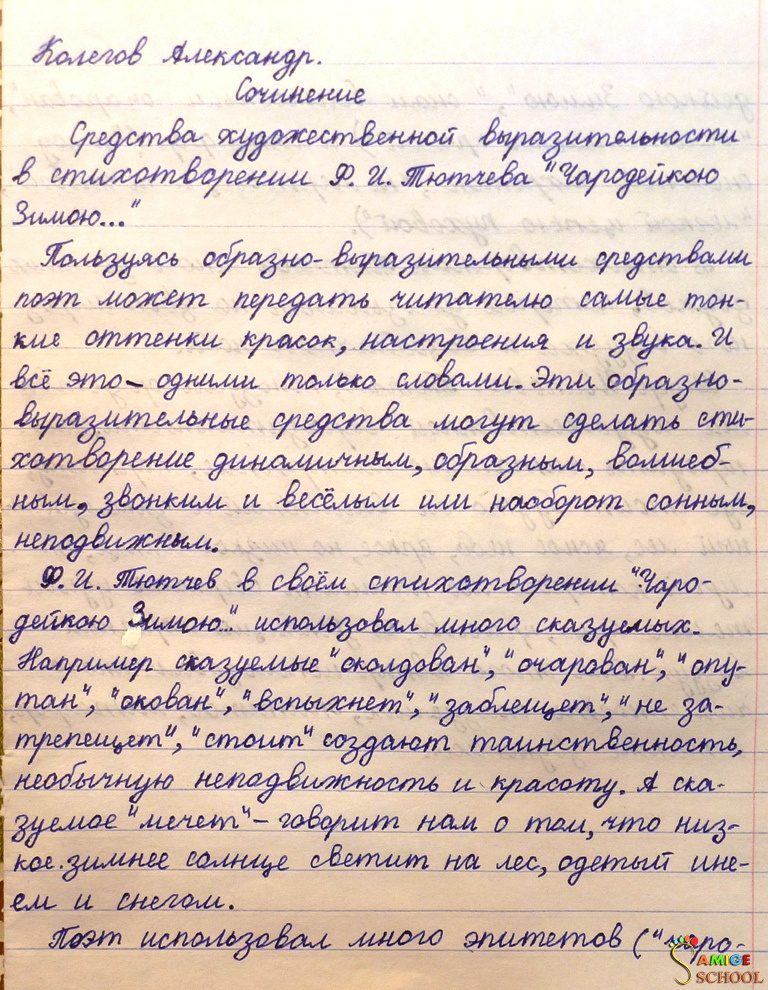 Колегов Александр.
Сочинение
Средства художественной выразительности
в стихотворении Ф. И. Тютчева "Чародейкою
Зимою..."
Пользуясь образно-выразительными средствами
поэт может передать читателю самые тон-
кие оттенки красок, настроения и звука. И
всё это – одними только словами. Эти образно-
выразительные средства могут сделать сти-
хотворение динамичным, образным, волшеб-
ным, звонким и весёлым или наоборот сонным,
неподвижным.
Ф. И. Тютчев в своём стихотворении "Чаро-
дейкою Зимою..." использовал много сказуемых.
Например сказуемые "околдован", "очарован", "опу-
тан", "окован", "вспыхнет", "заблещет", "не за-
трепещет", "стоит" создают таинственность,
необычную неподвижность и красоту. А ска-
зуемое "мечет" – говорит нам о том, что низ-
кое зимнее солнце светит на лес, одетый ине-
ем и снегом.
Поэт использовал много эпитетов ("чаро-
SAMIGE
SCHOOL